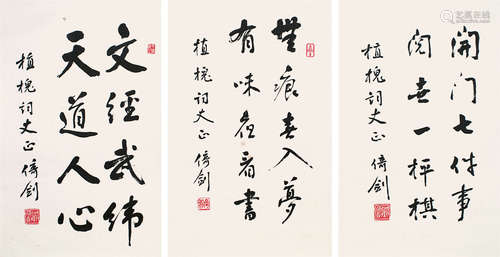 開门七件事
阅世一枰棋
植槐词丈正 倚剑
無痕春入夢
有味夜看書
植槐词丈正 倚剑
文經武緯
天道人心
植槐词丈正 倚剑